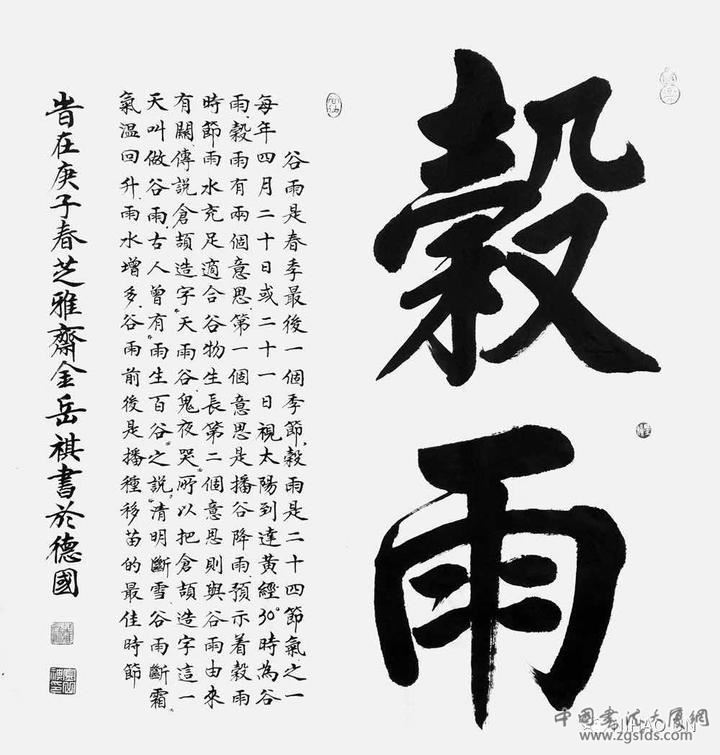 穀雨
谷雨是春季最後一個季節,穀雨是二十四節氣之一
每年四月二十日或二十一日視太陽到達黃經30°時為谷
雨,穀雨有兩個意思,第一個意思是播谷降雨預示着穀雨
時節雨水充足適合谷物生長第二個意思則與谷雨由來
有關,傳説倉頡造字,"天雨谷,鬼夜哭,"所以把倉頡造字這一
天叫做谷雨,古人曾有"雨生百谷"之説,"清明斷雪谷雨斷霜"
氣温回升,雨水增多,谷雨前後是播種移苗的最佳時節
旹在庚子春芝雅齋金岳祺書於德國
中国书法大展網
www.zgsfds.com